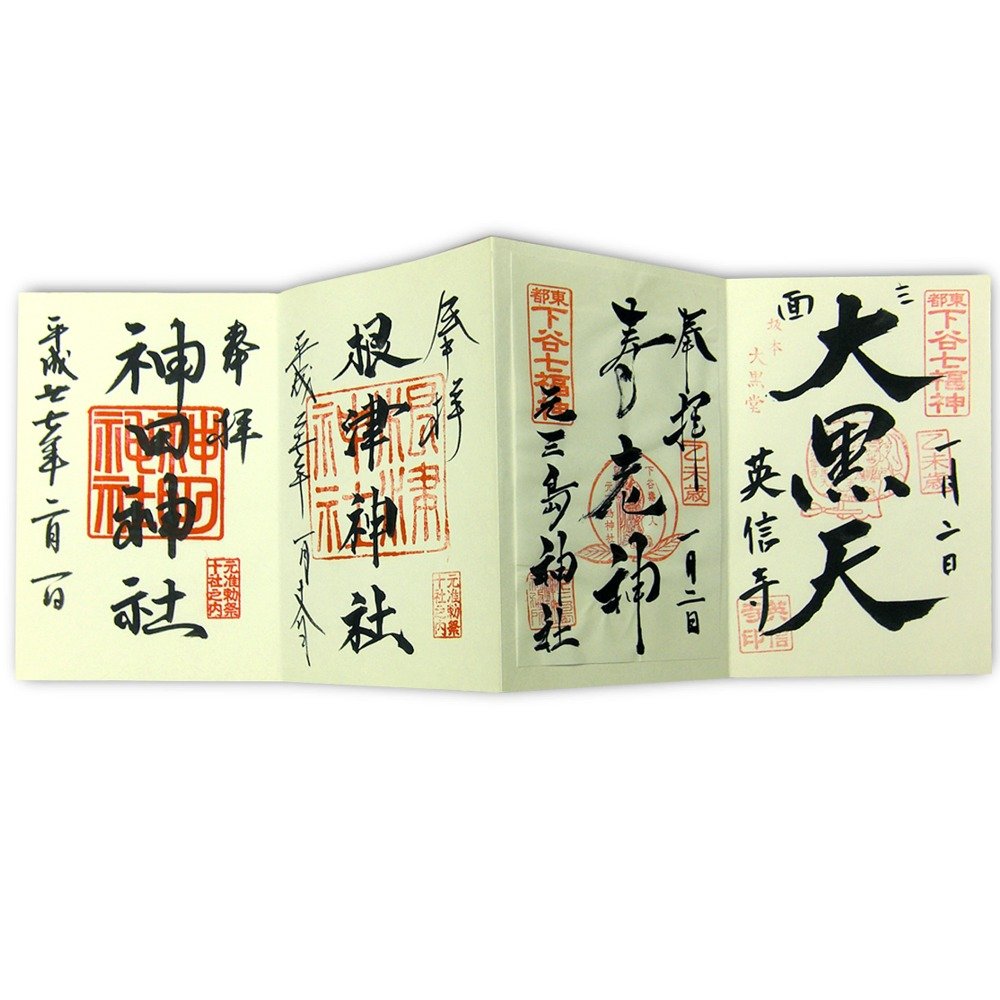 東都
下谷七福神
乙未歳
一月二日
三面
大黒天
坂本
大黒堂
英信寺
英信寺印
奉拝
乙未歳
一月二日
寿老神
東都
下谷七福神
元三島神社
奉拝
元准勅祭
十社之内
根津神社
根津神社
奉拝
元准勅祭
十社之内
神田神社
平成廿七年二月一日